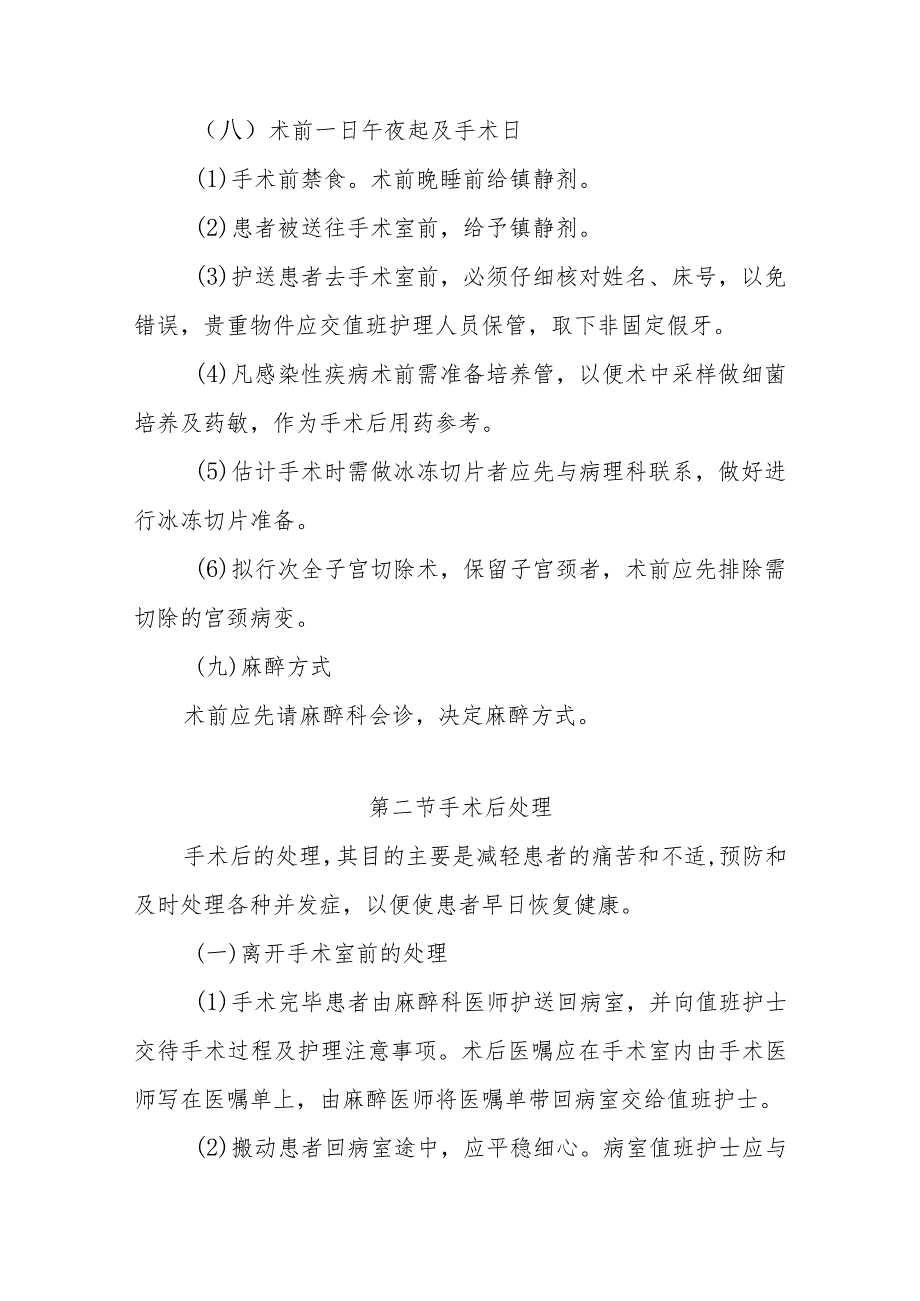 （八）术前一日午夜起及手术日
(1)手术前禁食。术前晚睡前给镇静剂。
(2)患者被送往手术室前，给予镇静剂。
(3)护送患者去手术室前，必须仔细核对姓名、床号，以免
错误，贵重物件应交值班护理人员保管，取下非固定假牙。
(4)凡感染性疾病术前需准备培养管，以便术中采样做细菌
培养及药敏，作为手术后用药参考。
(5)估计手术时需做冰冻切片者应先与病理科联系，做好进
行冰冻切片准备。
(6)拟行次全子宫切除术，保留子宫颈者，术前应先排除需
切除的宫颈病变。
(九)麻醉方式
术前应先请麻醉科会诊，决定麻醉方式。
第二节手术后处理
手术后的处理,其目的主要是减轻患者的痛苦和不适,预防和
及时处理各种并发症，以便使患者早日恢复健康。
(一)离开手术室前的处理
(1)手术完毕患者由麻醉科医师护送回病室，并向值班护士
交待手术过程及护理注意事项。术后医嘱应在手术室内由手术医
师写在医嘱单上，由麻醉医师将医嘱单带回病室交给值班护士。
(2)搬动患者回病室途中，应平稳细心。病室值班护士应与